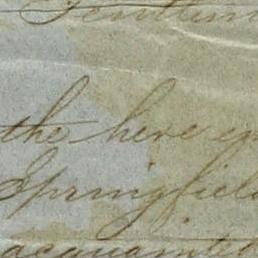 Gentlem
the here en
Springfield
acquainted